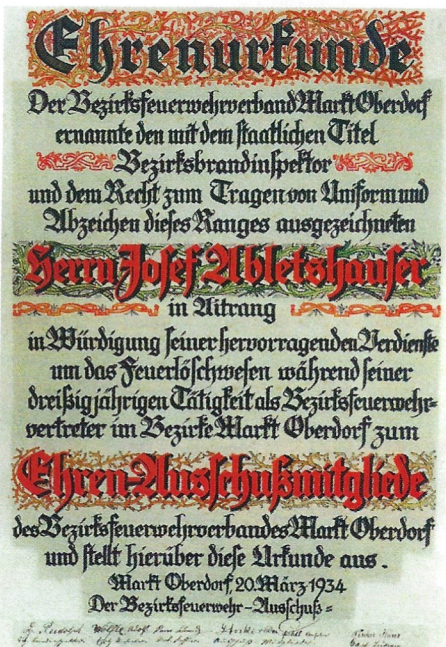 Ehrenurkunde
Der Bezirksfeuerwehrverband Markt Oberdorf
ernannte den mit dem staatlichen Titel
Bezirksbrandinspektor
und dem Recht zum Tragen von Uniform und
Abzeichen dieses Ranges ausgezeichneten
Herrn Josef Abletshauser
in Aitrang
in Würdigung seiner hervorragenden Verdienste
um das Feuerlöschwesen während seiner
dreißigjährigen Tätigkeit als Bezirksfeuerwehr-
vertreter im Bezirke Markt Oberdorf zum
Ehren-Ausschußmitgliede
des Bezirksfeuerwehrverbandes Markt Oberdorf
und stellt hierüber diese Urkunde aus.
Markt Oberdorf, 20. März 1934
Der Bezirksfeuerwehr-Ausschuß=